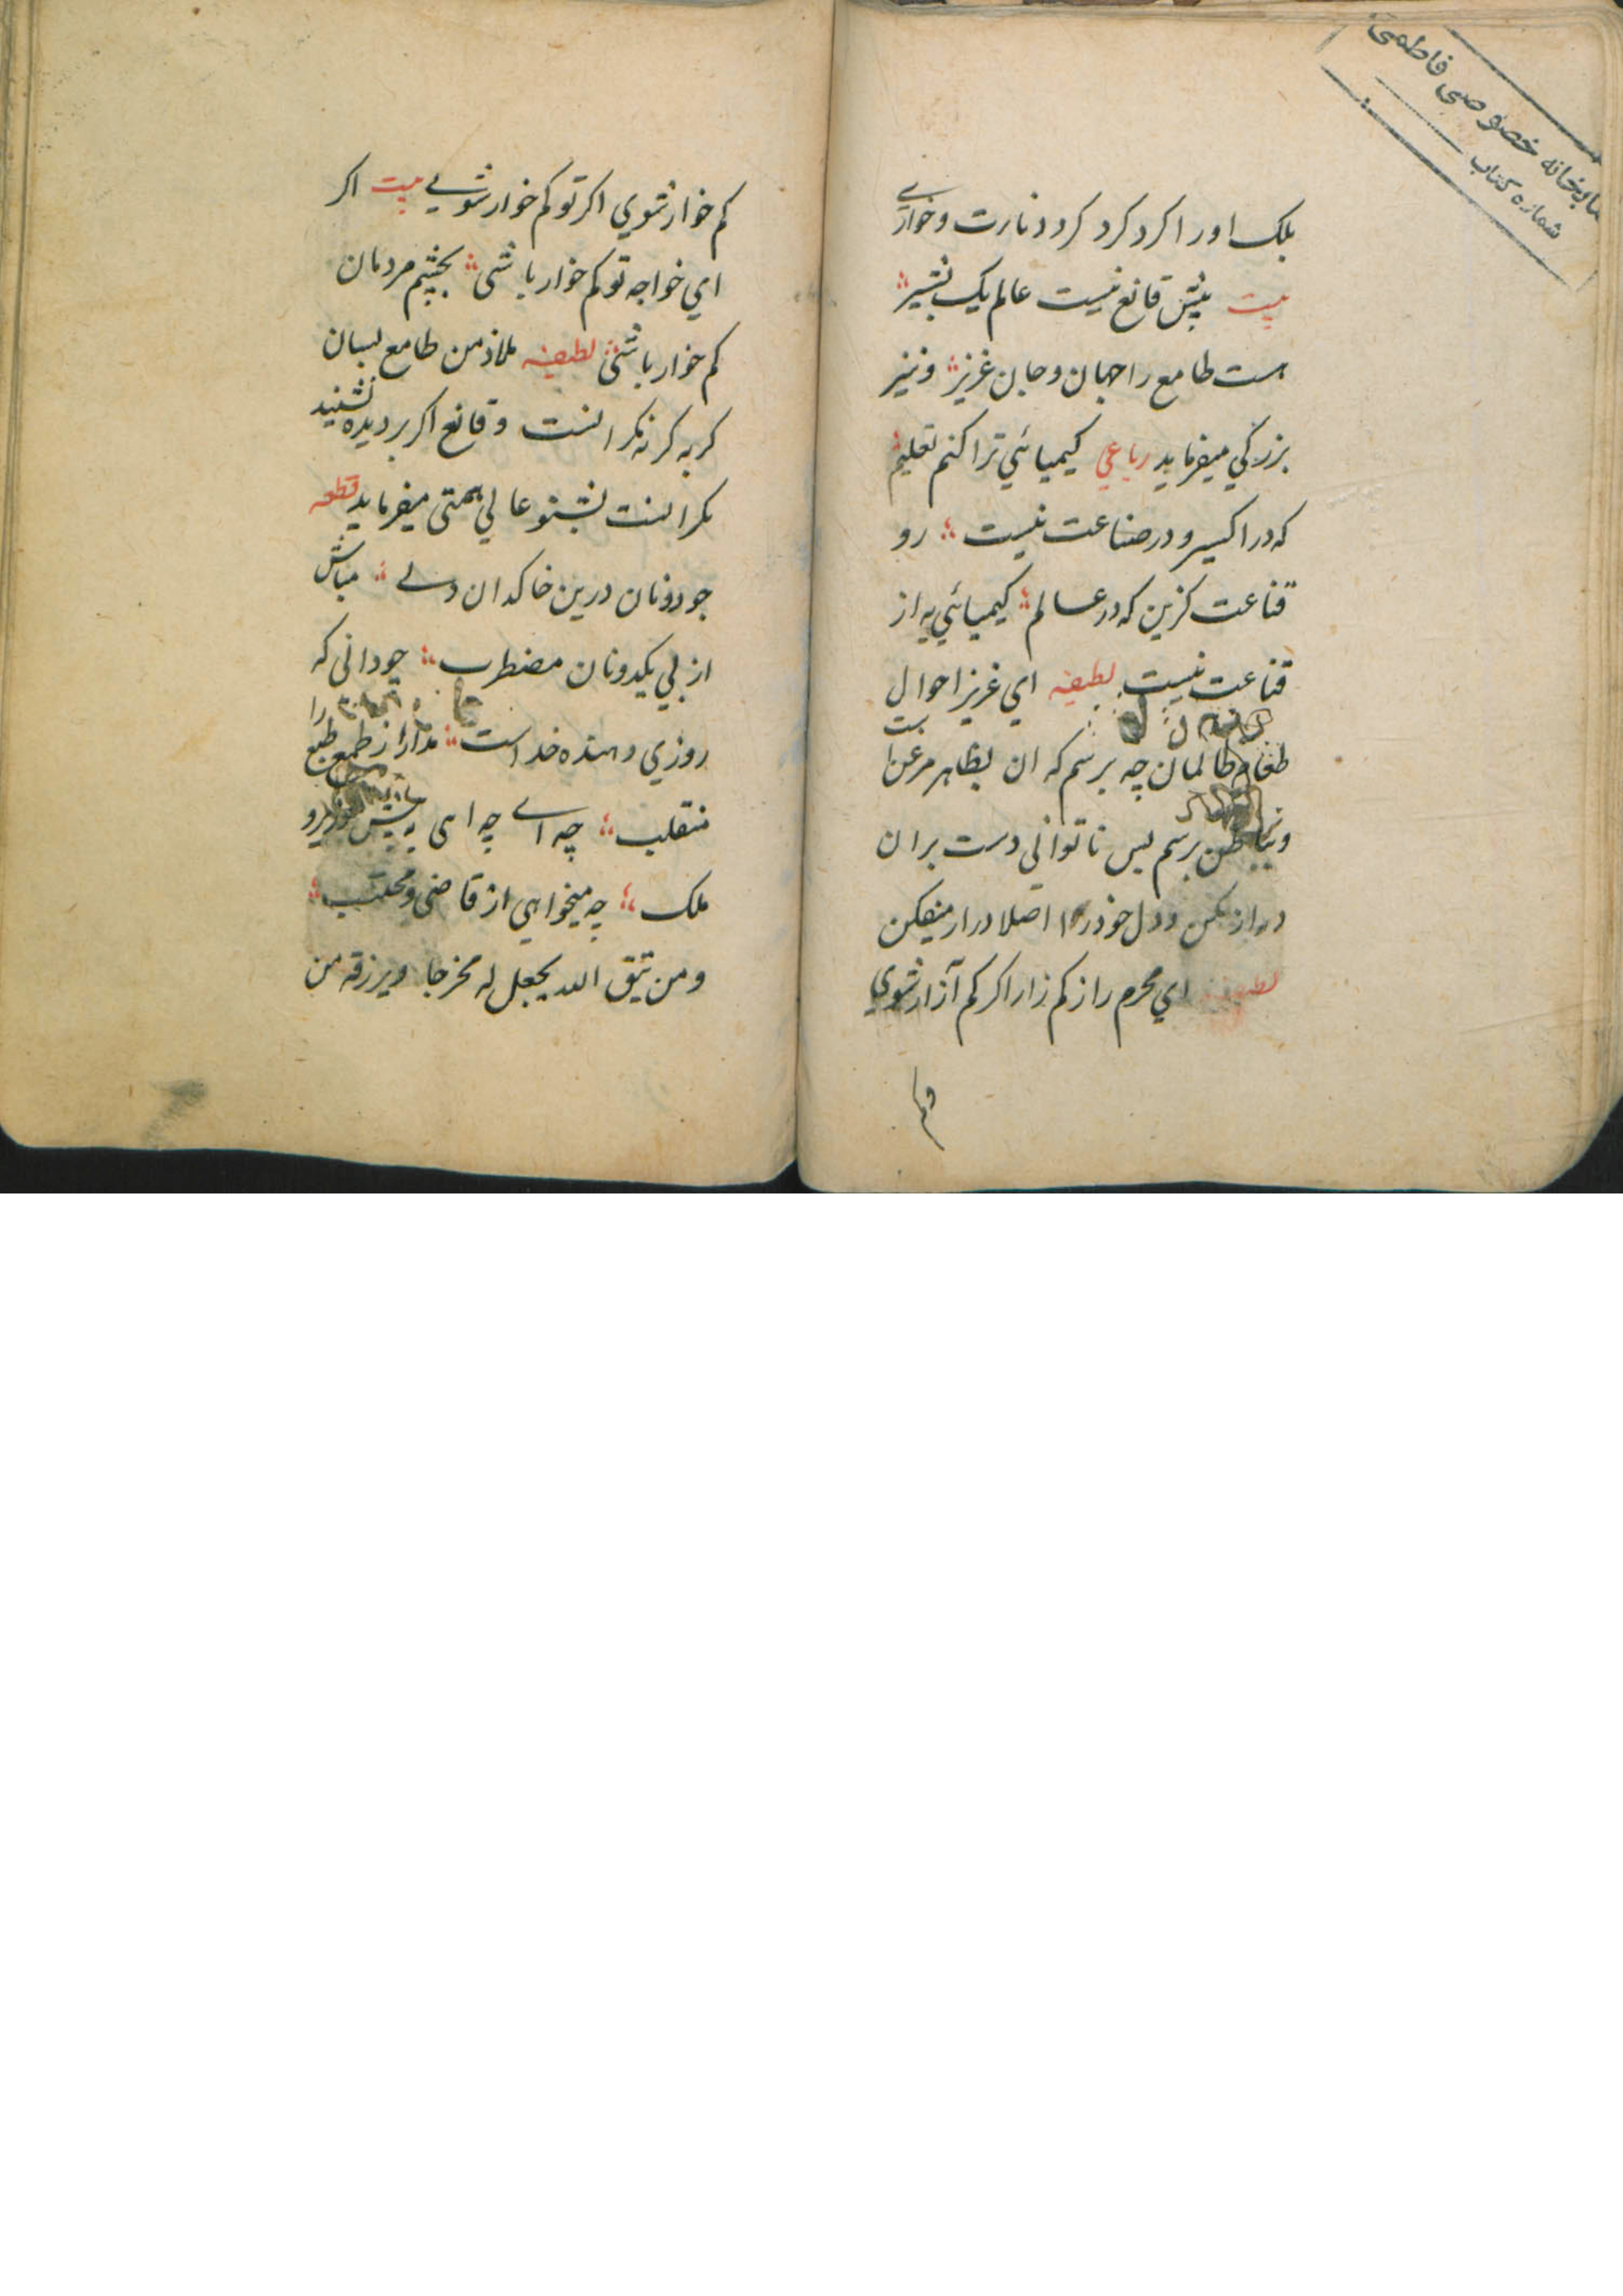 کتابخانه خصوصی فاطمی
شماره کتاب
بلک اورا کرد کرد کرد نارت و خواری
بیت پیش قانع نیست عالم یک بشیر
هست طامع را جهان و جان عزیز و نیز
بزرکي میفرماید رباعي کیمیائي ترا کنم تعلیم
که در اکسیر و در صناعت نیست رو
قناعت کزین که در عالم کیمیائي به از
قناعت نیست لطیفه اي عزیز احوال
طعام ظالمان چه پرسم که ان بظاهر مرغن
وبباطن برسم بس تا تواني دست بران
دراز مکن و دل خود را اصلا درار میفکن
لطیفه اي محرم راز کم زار اکر کم آزار شوي
وکم
کم خوار شوي اکر تو کم خوار شویي بیت اکر
اي خواجه تو کم خوار باشی بچشم مردمان
کم خوار باشی لطیفه ملاذ من طامع بسان
کربه کر نه نکر انست و قانع اکر بر دیده نشیند
نکر انست بشنو عالي همتی میفرماید قطعه
جو دونان درین خاکدان دلی مباش
از پي یکدونان مضطرب چو دانی که
روزي دهنده خداست مدار از طمع طبع را
منقلب چه اے چه ای به پیش
ملک چه میخواهي از قاضی و محتسب
ومن یتق الله یجعل له مخرجا ویرزقه من